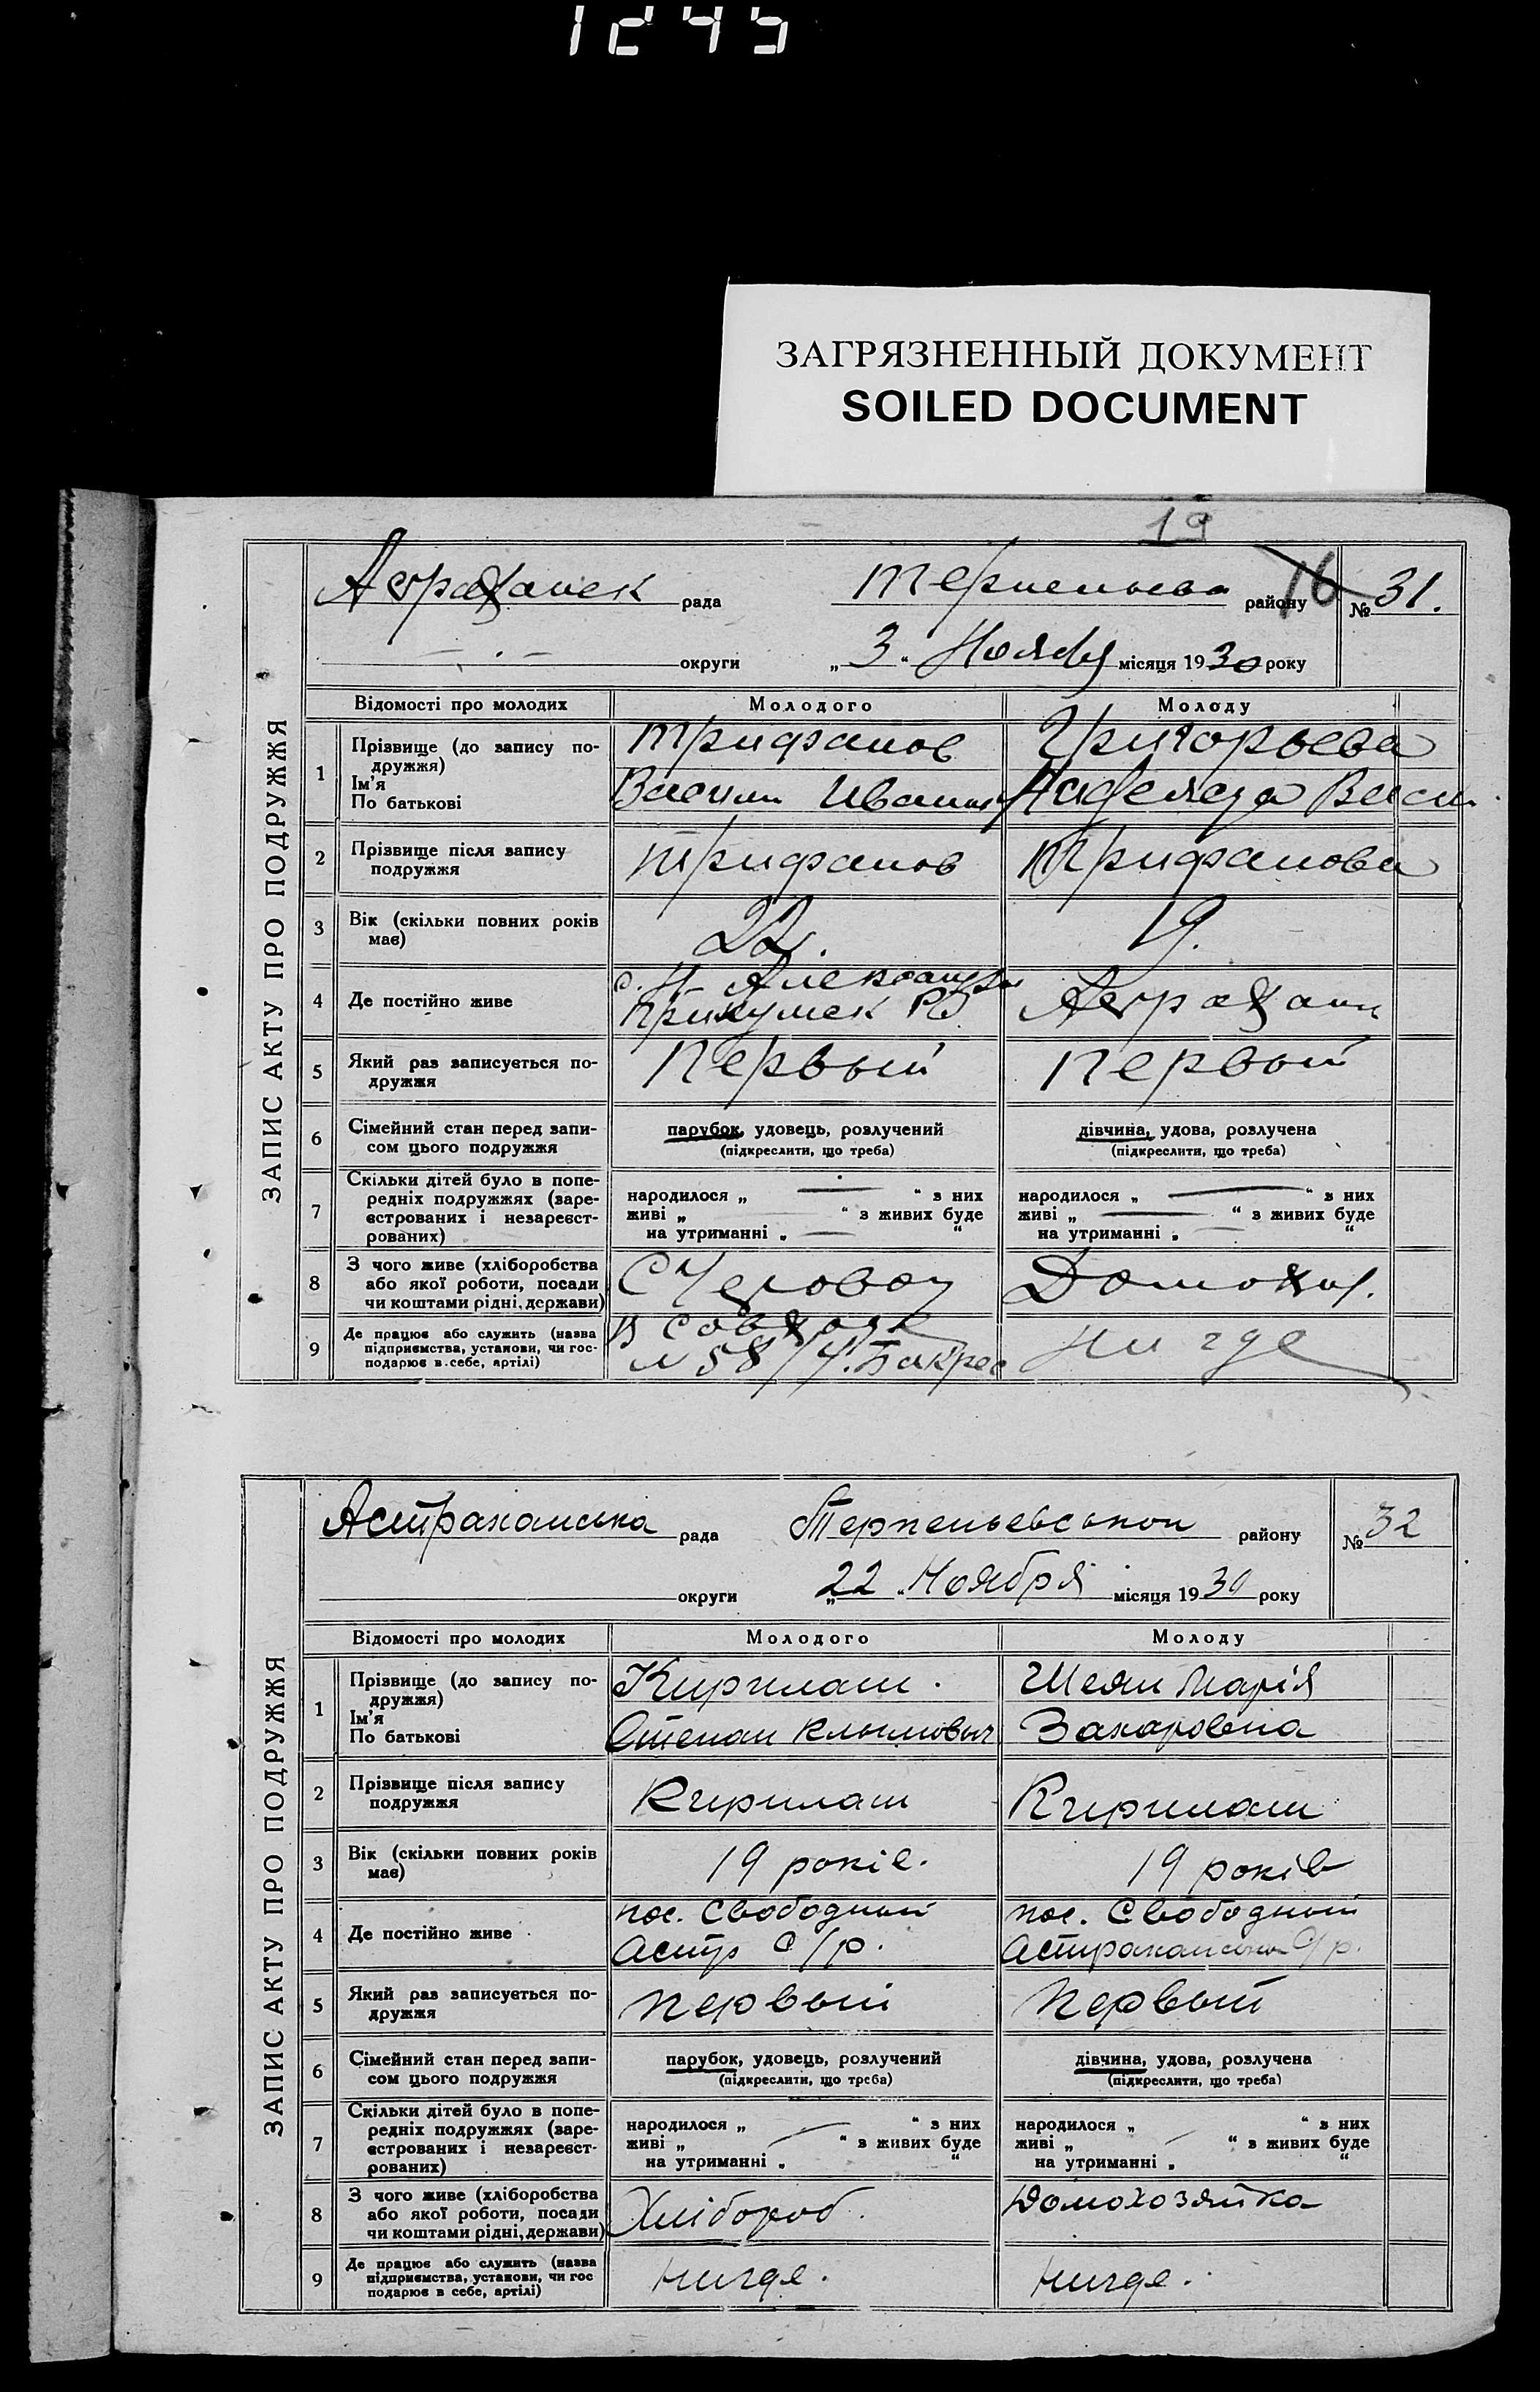 1245
ЗАГРЯЗНЕННЫЙ ДОКУМЕНТ
SOILED DOCUMENT
19
16
ЗАПИС АКТУ ПРО ПОДРУЖЖЯ
Астраханск рада Терпеньева району № 31.
округи „3“ Ноября місяця 1930 року
Відомості про молодих Молодого Молоду
1 Прізвище (до запису по-
дружжя)
Ім'я
По батькові
Трифанов Григорьева
Василий Иванов Надежда Васил.
2 Прізвище після запису
подружжя
Трифанов Трифанова
3 Вік (скільки повних років
має)
22. 19.
4 Де постійно живе
с. Н Александр
Прикумск Астрахан
5 Який раз записується по-
дружжя
Первый первый
6 Сімейний стан перед запи-
сом цього подружжя
парубок, удовець, розлучений дівчина, удова, розлучена
(підкреслити, що треба) (підкреслити, що треба)
7 Скільки дітей було в попе-
редніх подружжях (заре-
єстрованих і незареєст-
рованих)
народилося „ — “ з них народилося „ — “ з них
живі „ “ з живих буде живі „ — “ з живих буде
на утриманні „ — “ на утриманні „ — “
8 З чого живе (хліборобства
або якої роботи, посади
чи коштами рідні, держави)
Домохоз.
9 Де працює або служить (назва
підприємства, установи, чи гос-
подарює в себе, артілі)
В совхозе нигде
№ 58
ЗАПИС АКТУ ПРО ПОДРУЖЖЯ
Астраханська рада Терпеньевськои району № 32
округи „22“ Ноября місяця 1930 року
Відомості про молодих Молодого Молоду
1 Прізвище (до запису по-
дружжя)
Ім'я
По батькові
Кирилаш. Шеян Марія
Степан Климовыч Захаровна
2 Прізвище після запису
подружжя
Кирилаш Кирилаш
3 Вік (скільки повних років
має)
19 років. 19 років
4 Де постійно живе
пос. Свободный пос. Свободный
Астр с/р. Астраханська с/р.
5 Який раз записується по-
дружжя
первый Первый
6 Сімейний стан перед запи-
сом цього подружжя
парубок, удовець, розлучений дівчина, удова, розлучена
(підкреслити, що треба) (підкреслити, що треба)
7 Скільки дітей було в попе-
редніх подружжях (заре-
єстрованих і незареєст-
рованих)
народилося „ “ з них народилося „ “ з них
живі „ “ з живих буде живі „ “ з живих буде
на утриманні „ “ на утриманні „ “
8 З чого живе (хліборобства
або якої роботи, посади
чи коштами рідні, держави)
Хлібороб. Домохозяйка
9 Де працює або служить (назва
підприємства, установи, чи гос
подарює в себе, артілі)
нигде. нигде.